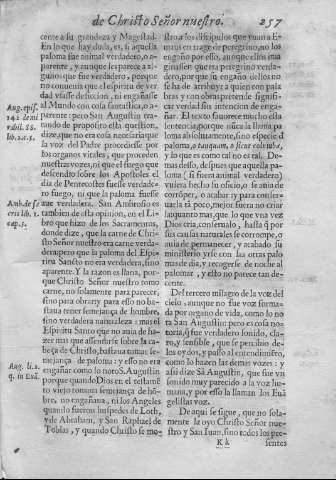 de Christo Señor nuestro. 257
cente a su grandeza y Magestad.
En lo que hay duda, es, si aquella
paloma fue animal verdadero, o a-
parente, y aunque les parece a al-
guno que fue verdadero, porque
no conuenia que el espiritu de ver
dad vsasse de ficcion, ni engañasse
al Mundo con cosa fantastica, o a-
parente: pero San Augustin tra-
tando de proposito esta question,
dize, que no era cosa necessaria que
la voz del Padre procediesse por
los organos vitales, que proceden
nuestras vozes, ni que el fuego que
descendio sobre los Apostoles el
dia de Pentecostes fuesse verdade-
ro fuego, ni que la paloma fuesse
aue verdadera. San Ambrosio es
tambien de esta opinion, en el Li-
bro que hizo de los Sacramentos,
donde dize, que la carne de Chris-
to Señor nuestro era carne verda-
dera: pero que la paloma del Espi-
ritu Santo no era verdadera, sino
aparente. Y la razon es llana, por-
que Christo Señor nuestro tomo
carne, no solamente para parecer,
sino para obrar: y para esso no ba-
staua tener semejança de hombre,
sino verdadera naturaleza: mas el
Espiritu Santo que no auia de ha-
zer mas que assentarse sobre la ca-
beça de Christo, bastaua tomar se-
mejança de paloma: y esso no era
engañar como lo noto S. Augustin
porque quando Dios en el testamē
to viejo tomaua semejança de hō-
bre, no engañaua, ni los Angeles
quando fueron huespedes de Loth,
y de Abraham, y San Raphael de
Tobias, y quando Christo se mo-
Aug. epis.
lib. 2. c. 1.
cap. 5.
Aug. li. 2.
stro a los discipulos que yuan a E-
maus en trage de peregrino, no los
engaño por esso, aunque ellos ima-
ginassen que era peregrino, por
que su engaño dellos no
se ha de atribuyr a quien con pala
bras y con obras pretende signifi-
car verdad sin intencion de enga-
ñar. El texto fauorece mucho esta
sentencia, porque nūca la llama pa
loma absolutamente, sino especie d̄
paloma,
y lo que es como tal no es tal. De-
mas desso, despues que aquella palo-
ma (si fuera animal verdadero)
vuiera hecho su oficio, o se auia de
corrōper, o acabar y para conser-
uarla tā poco, mejor fuera no criar
la quanto mas, que lo que vna vez
Dios cria, conserualo, hasta q̄ por
sin causas naturales se corrompe, o
auia de permanecer, y acabado su
ministerio yrse con las otras palo
mas de dia, y recogerse de noche al
palomar, y esto no parece tan de-
cente.
Del tercero milagro de la voz del
cielo, aunque no fue voz forma-
da por organo de vida, como lo no
ra San Augustin: pero es cosa noto
ria, q̄ fue verdadero sonido, cla-
ro, y sensible, que se percibio de-
los oydos, y passo al entendimiēto,
como lo hazen las demas vozes: y
assi dize Sā Augustin, que fue vn
sonido muy parecido a la voz hu-
mana, y por esso la llaman los Euā
gelistas voz.
De aqui se sigue, que no sola-
mente la oyo Christo Señor nue-
stro y San Iuan, sino todos los pre-
K k
sentes